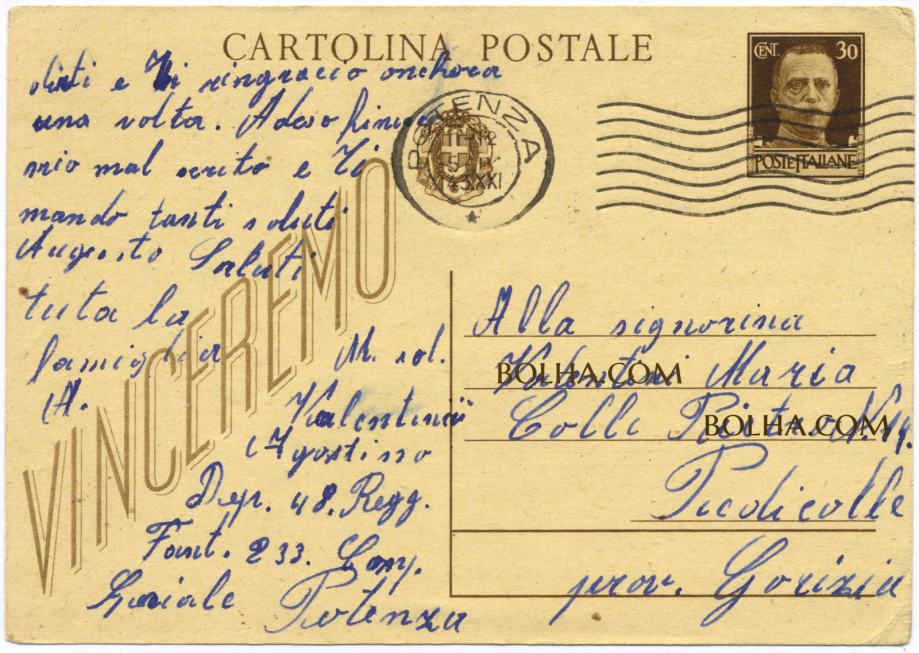 CARTOLINA POSTALE
CENT. 30
POSTE ITALIANE
POTENZA
XXI
VINCEREMO
e Ti ringraccio onchora
una volta. Adeso
mio mal scrito e Ti
mando tanti saluti
Saluti
tuta la
famighia M. sol.
A.
Agostino
Dep. 48. Regg.
Fant. 233. Comp.
Potenza
Alla signorina
Maria
Colle
Piedicolle
prov. Gorizia
BOLHA.COM
BOLHA.COM